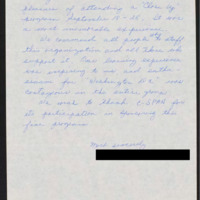 pleasure of attending a "Close Up"
program September 18 - 25. It was
a most memorable experience.
We commend all people who staff
this organization and all those who
support it. Our learning experience
was inspiring to us and enthu-
siasm for "Washington D.C." was
contagious in the entire group.
We wish to thank C-SPAN for
its participation in sponsoring this
fine program.
Most sincerely